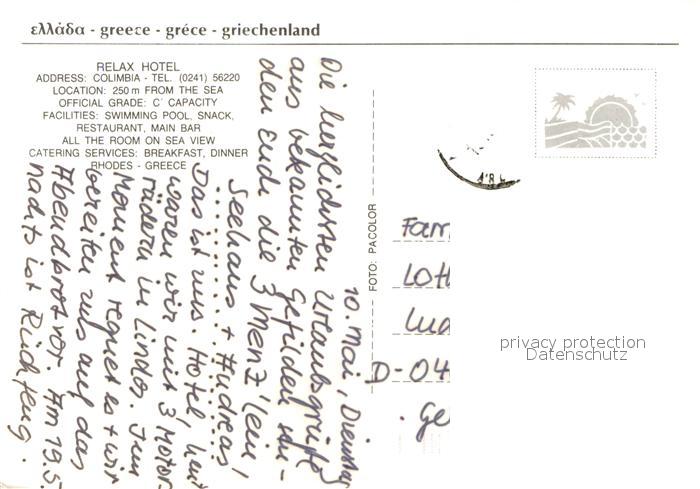 ελλάδα - greece - gréce - griechenland
RELAX HOTEL
ADDRESS: COLIMBIA - TEL. (0241) 56220
LOCATION: 250 m FROM THE SEA
OFFICIAL GRADE: C΄ CAPACITY
FACILITIES: SWIMMING POOL, SNACK,
RESTAURANT, MAIN BAR
ALL THE ROOM ON SEA VIEW
CATERING SERVICES: BREAKFAST, DINNER
RHODES - GREECE
10. Mai, Dienstag
Die herzlichsten Urlaubsgrüße
aus bekannten Gefilden sen-
den Euch die 3 Menz'lein,
Seehaus + Andreas
Das ist uns. Hotel, heut
waren wir mit 3 Motor-
rädern in Lindos. Im
Moment regnet es + wir
bereiten uns auf das
Abendbrot vor. Am 19.5.
nachts ist Rückflug.
FOTO: PACOLOR
Fam
Loth
Lud
D-04
Ge
privacy protection
Datenschutz